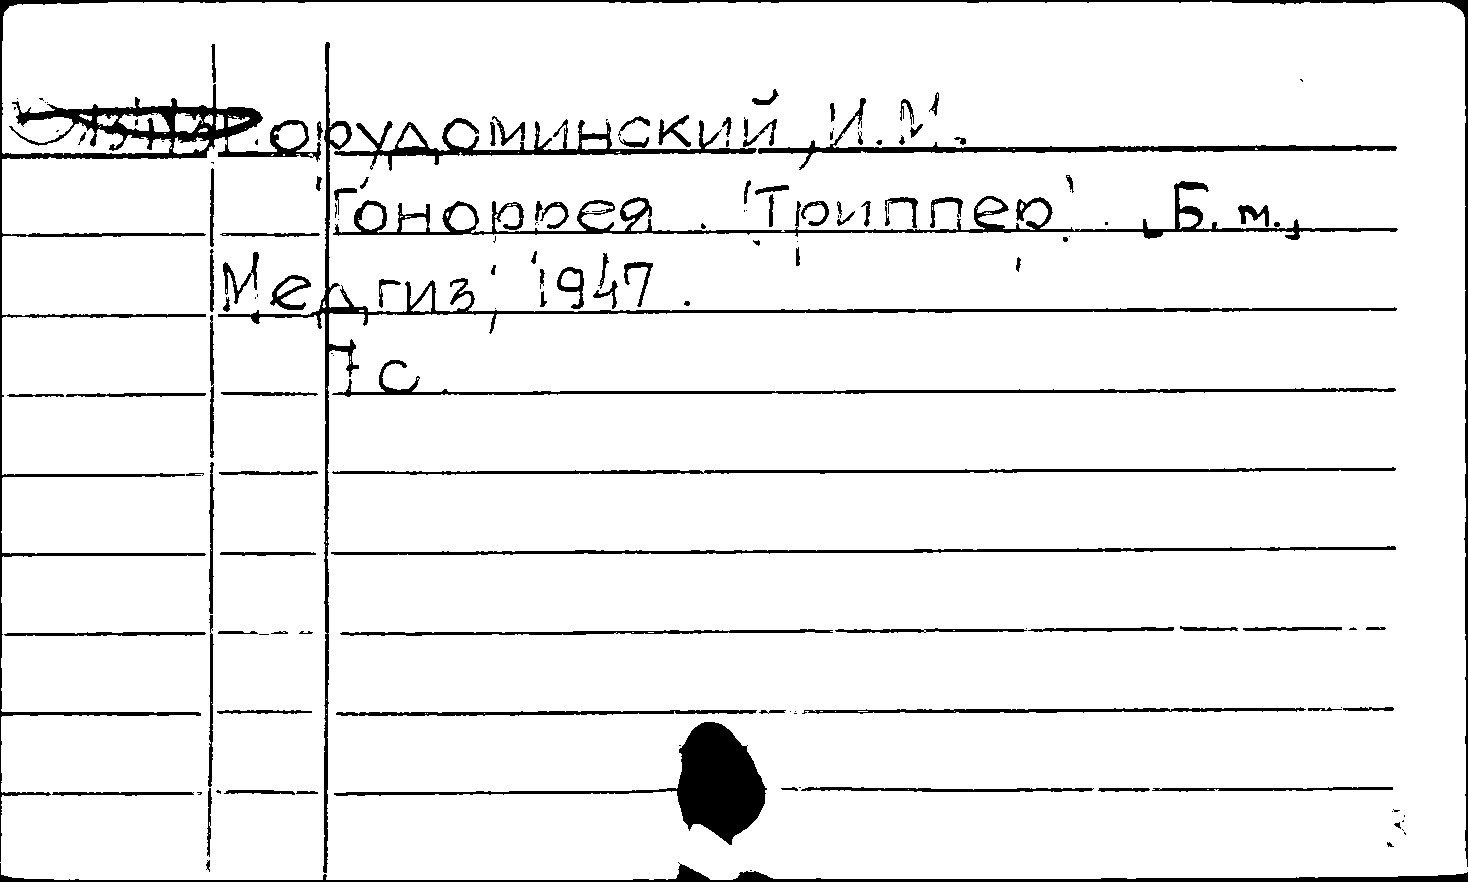 Порудоминский, И.М.
Гоноррея. "Триппер". [Б. м.]
Медгиз, 1947.
7 с.